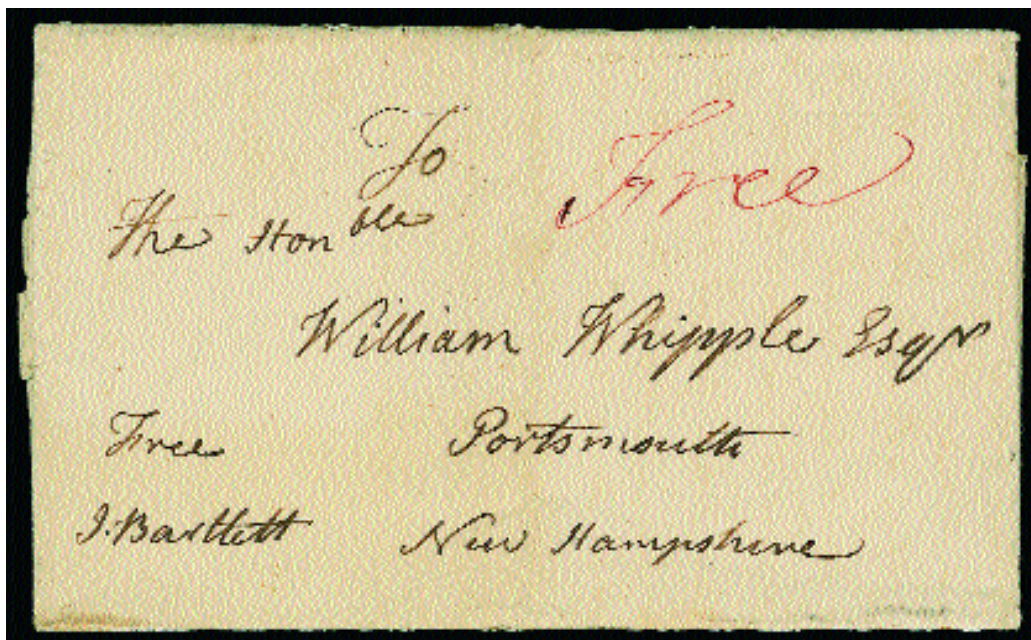 To
Free
The Honble
William Whipple Esqr
Free
Portsmouth
J. Bartlett
New Hampshire